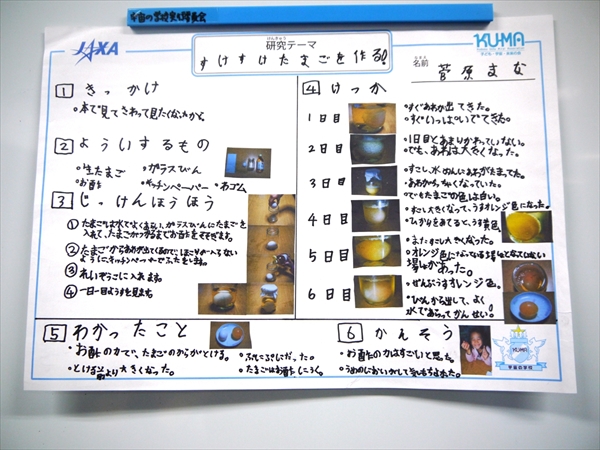 JAXA
けんきゅう
研究テーマ
すけすけたまごを作る!
KU-MA
名前 菅原まな
1 きっかけ
・本で見てさわって見たくなったから。
2 よういするもの
・生たまご ・ガラスびん
・お酢 ・キッチンペーパー ・わゴム
3 じっけんほうほう
① たまごを水でよくあらい、ガラスびんにたまごを
入れて、たまごがつかるまでお酢をそそぎます。
② たまごからあわが出てくるので、ほこりが入らない
ようにキッチンペーパーでふたをします。
③ れいぞうこに入れます。
④ 一日一回ようすを見ます。
4 けっか
1日目
・すぐあわが出てきた。
・すぐいっぱいでてきた。
2日目
・1日目とあまりかわっていない。
・でも、あわは大きくなった。
3日目
・すこし、水めんにあわがたまってた。
・あわがちっちゃくなっていた。
・でもたまごの色は白い。
4日目
・すこし大きくなって、うすオレンジ色になった。
・ひかりをあてると、うす黄色。
5日目
・またすこし大きくなった。
・オレンジ色になっている場しょとなっていない
場しょがあった。
6日目
・ぜんぶうすオレンジ色。
・びんから出して、よく
水であらってかんせい!
5 わかったこと
・お酢の力で、たまごのからがとける。
・とける前より大きくなった。
・たまごはお酢
6 かんそう
・お酢の力はすごいと思った。
KU-MA
宇宙の学校